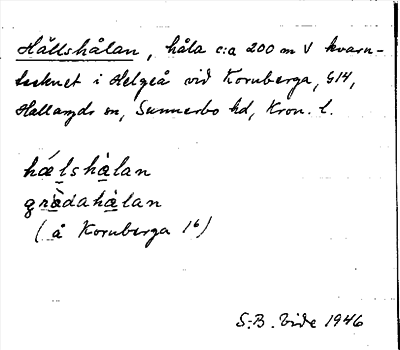 Hällshålan, håla c:a 200 m V kvarn-
tecknet i Helgeå vid Kornberga, G14,
Hallaryds sn, Sunnerbo hd, Kron. l.
hǽlshålan
gràdahålan
(å Kornberga 1⁶)
S:B. Vide 1946